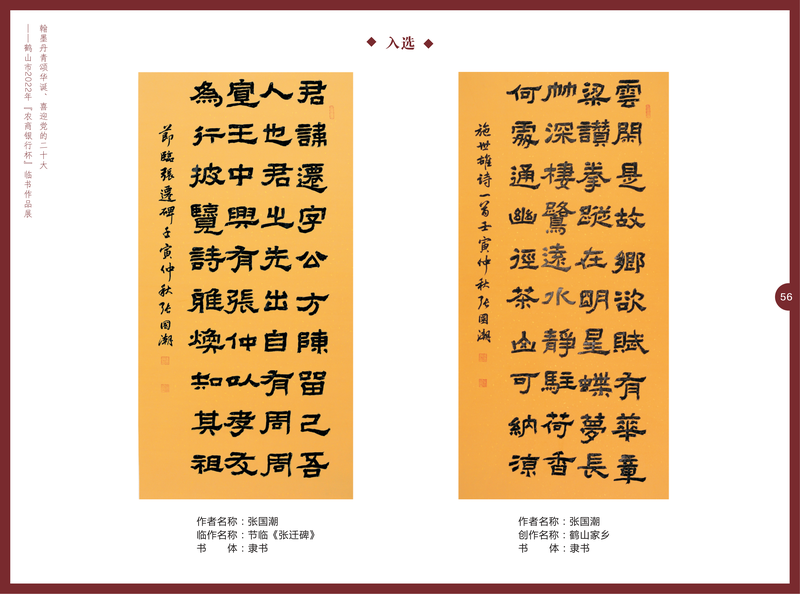 翰墨丹青颂华诞、喜迎党的二十大
——鹤山市2022年『农商银行杯』临书作品展
入选
君諱遷字公方陳留己吾
人也君之先出自有周周
宣王中興有張仲以孝友
為行披覽詩雅煥知其祖
節臨張遷碑壬寅仲秋张国潮
雲閑是故鄉欲賦有華章
梁讚拳蹤在明星蝶夢長
竹深棲鷺遠水靜駐荷香
何處通幽徑茶山可納涼
施世雄诗一首壬寅仲秋张国潮
56
作者名称：张国潮
临作名称：节临《张迁碑》
书 体：隶书
作者名称：张国潮
创作名称：鹤山家乡
书 体：隶书